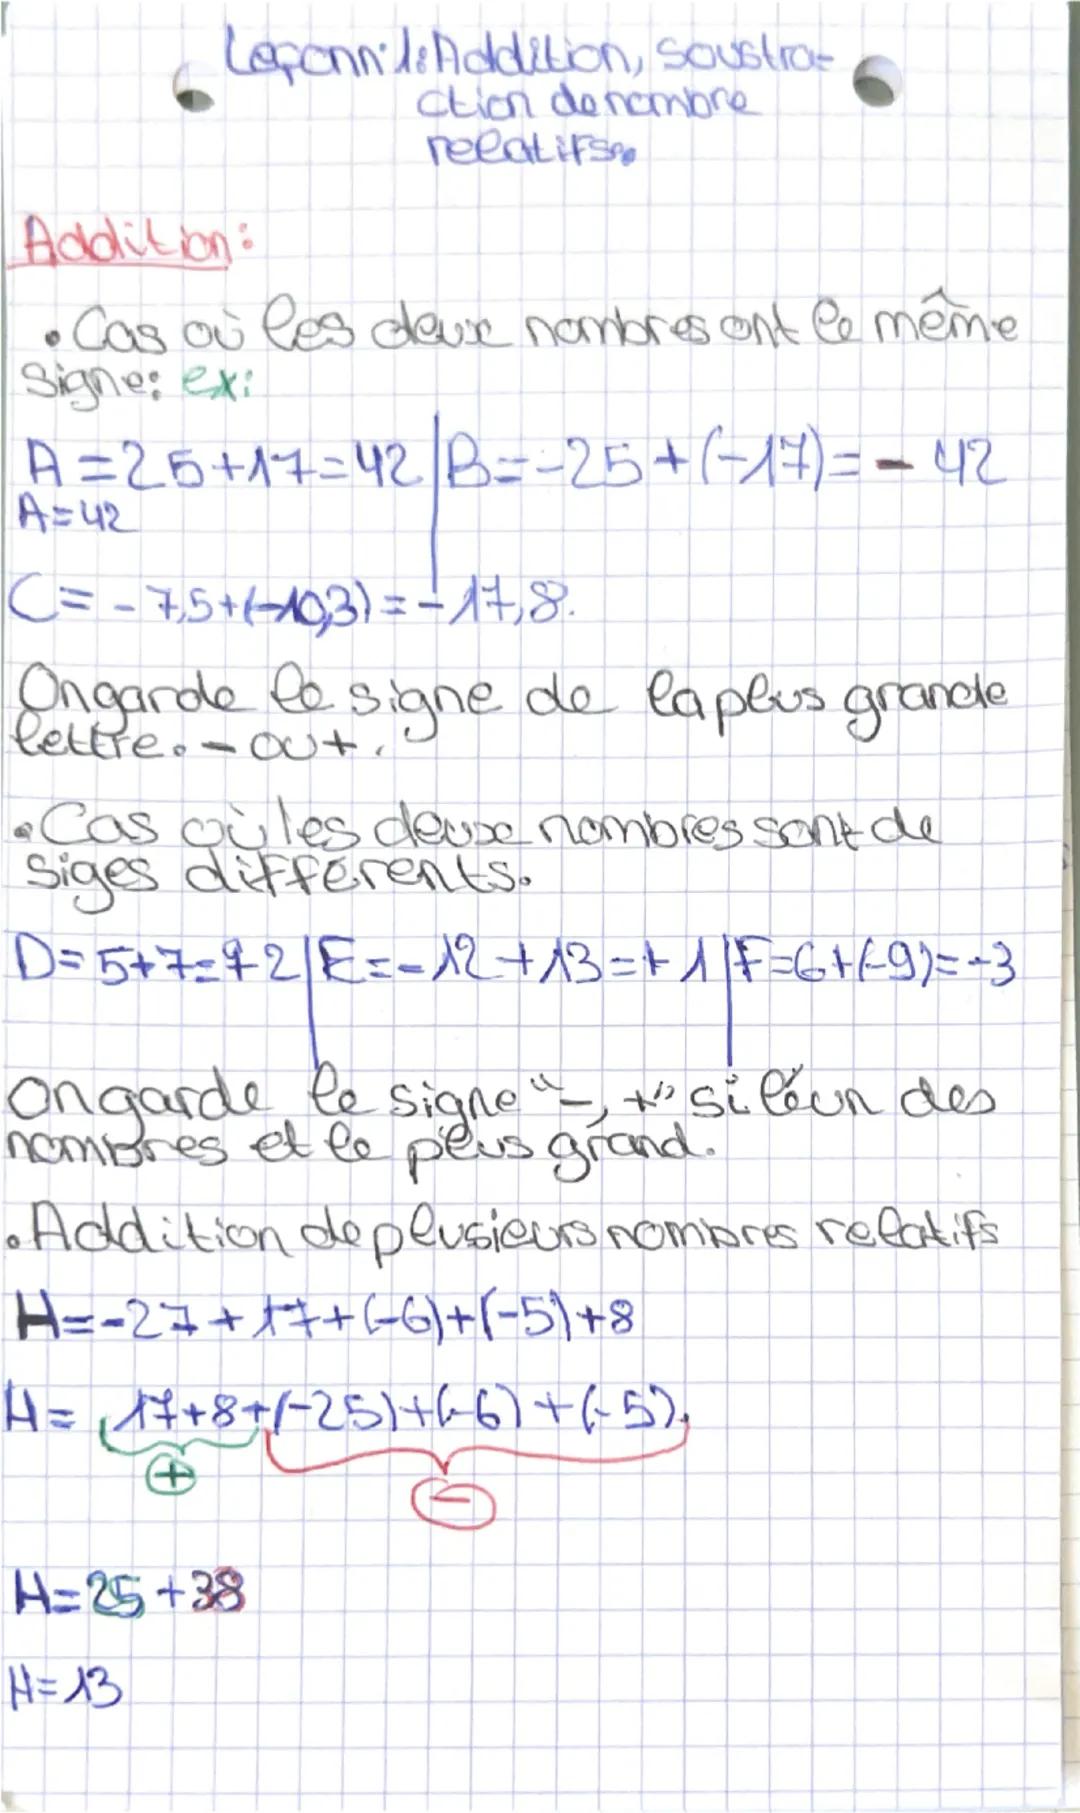 Leçon n°1: Addition, soustra-
ction de nombre
relatifs.
Addition:
• Cas où les deux nombres ont le même
signe: ex:
A = 25+17=42 | B=-25+(-17)=- 42
A=42
C= -7,5+(-10,3) = -17,8.
On garde le signe de la plus grande
lettre. - ou +.
• Cas où les deux nombres sont de
siges différents.
D= 5+7= 2 | E=-12+13=+1 | F=6+(-9)=-3
On garde le signe "-, +" si l'un des
nombres et le plus grand.
• Addition de plusieurs nombres relatifs
H=-27+17+(-6)+(-5)+8
H= 17+8+(-25)+(-6)+(-5)
+
-
H=25+38
H=13